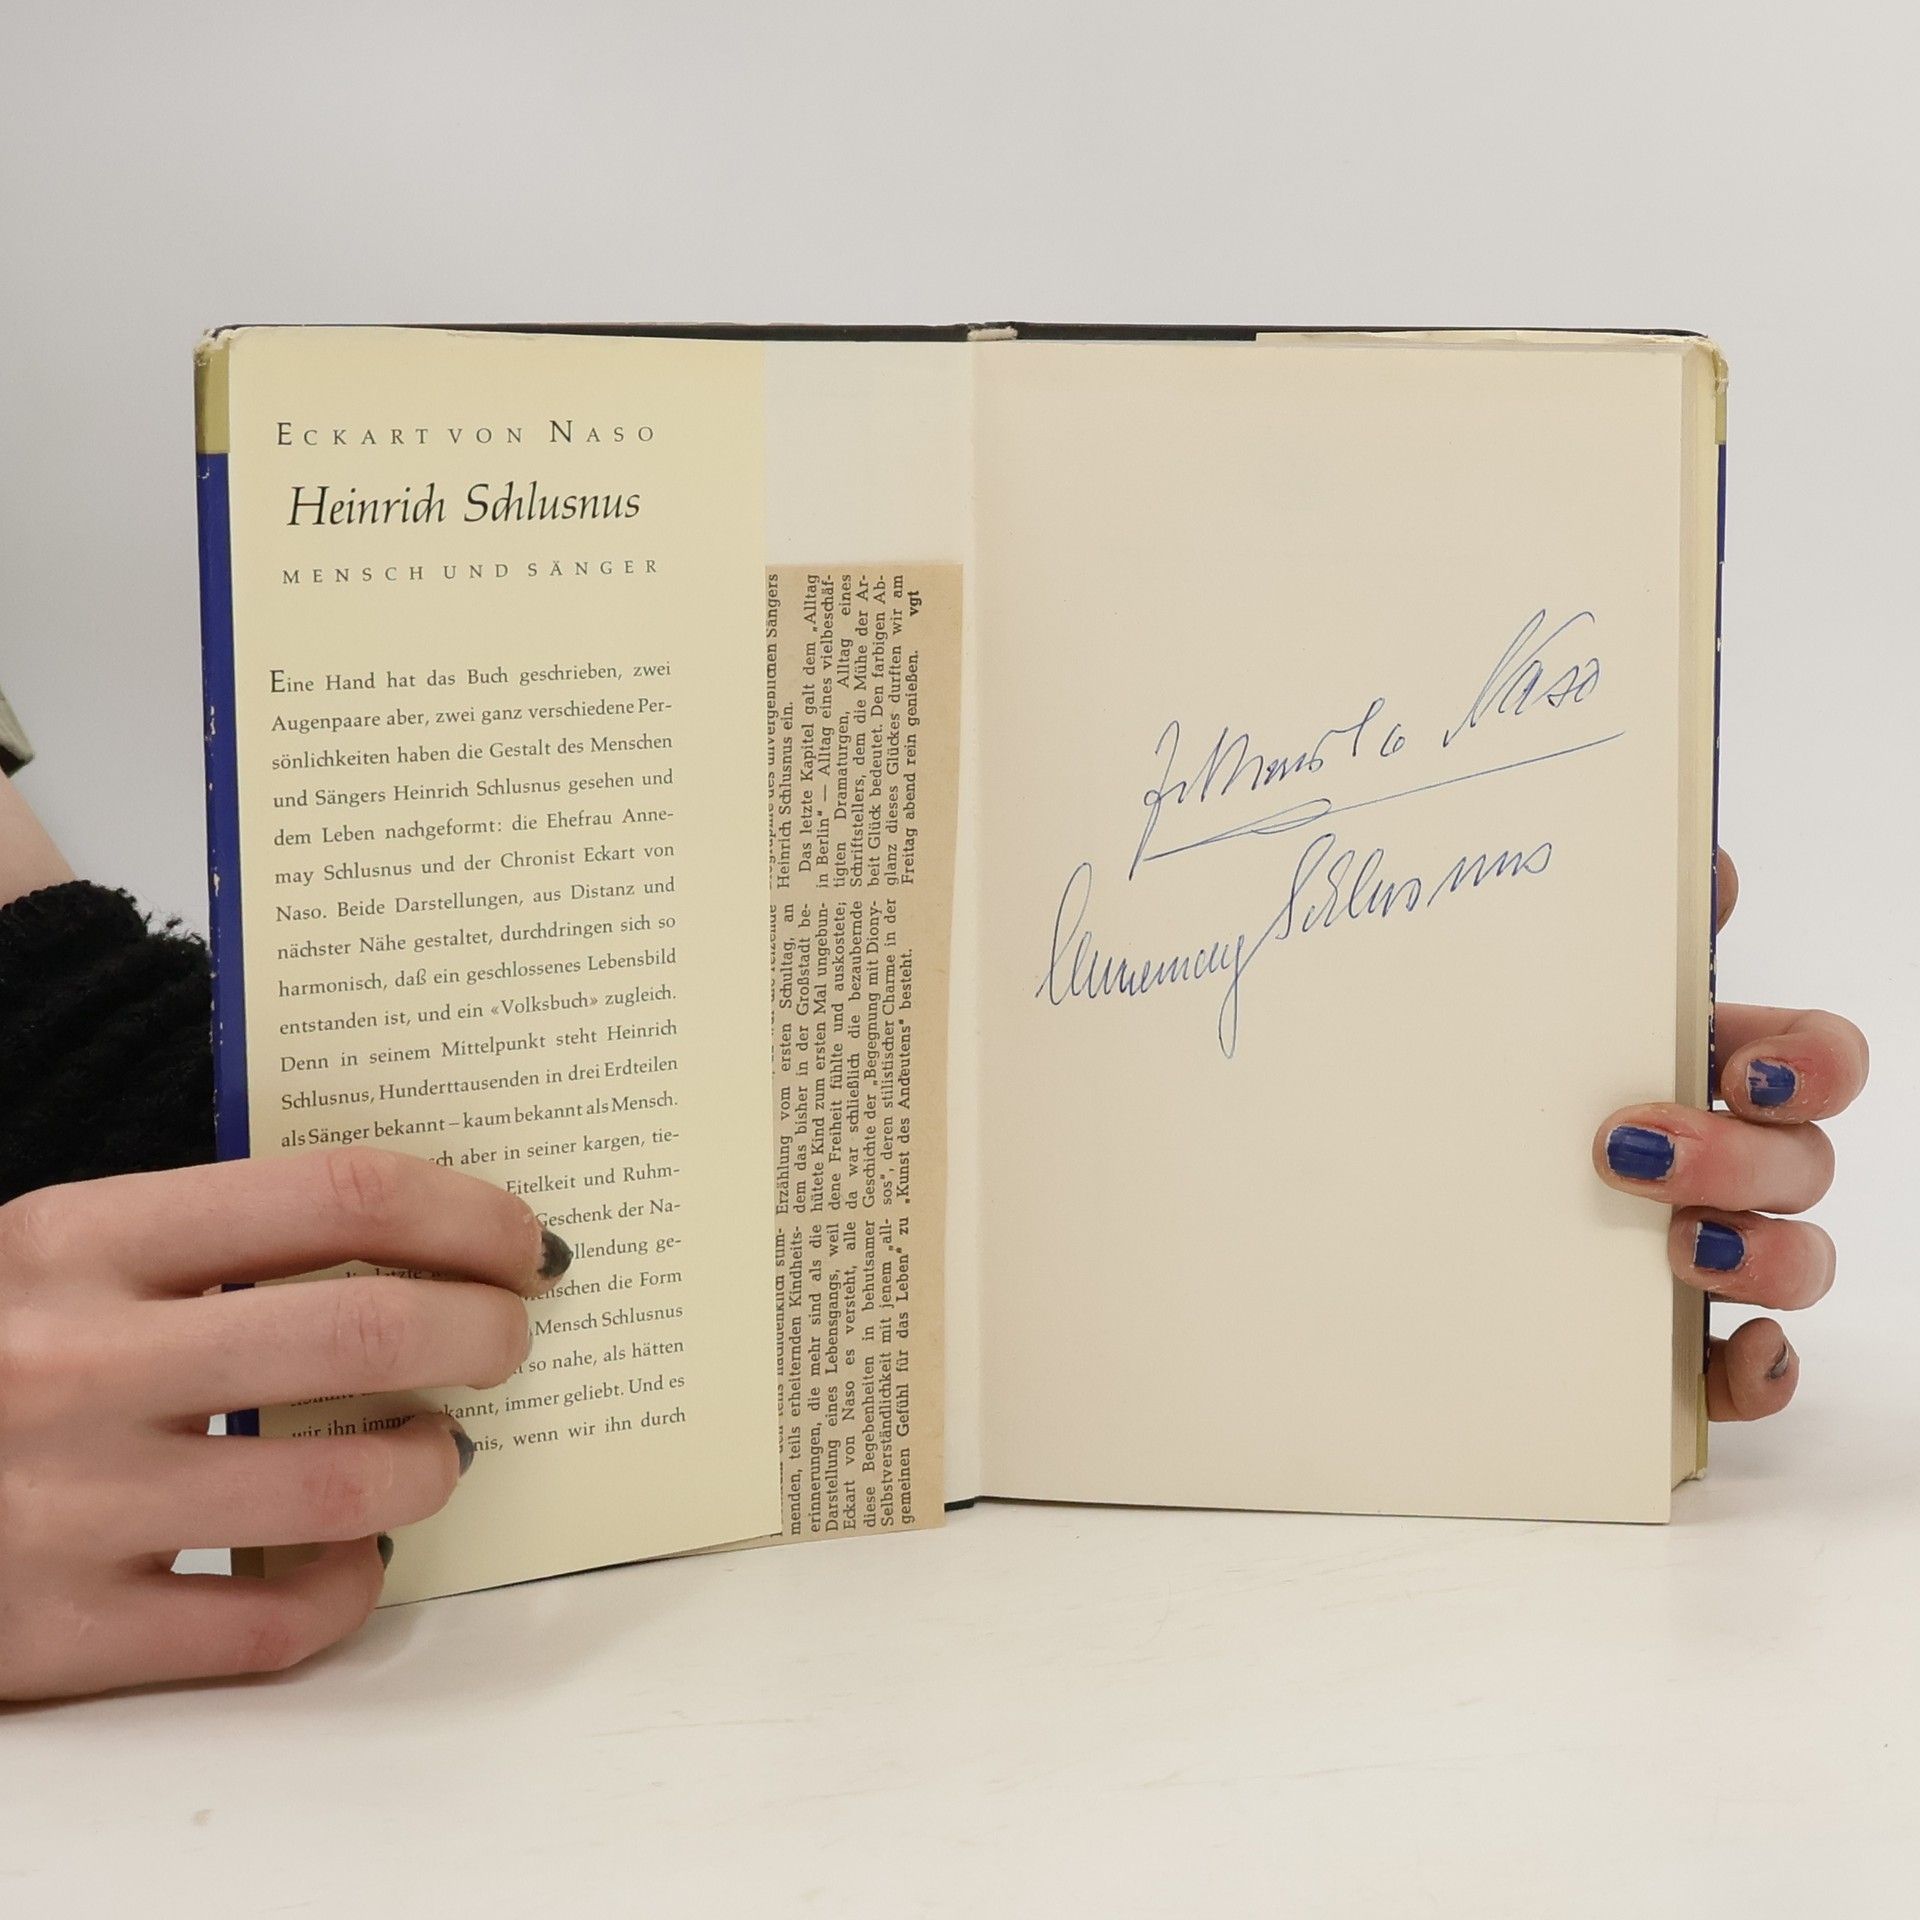 ECKART VON NASO
Heinrich Schlusnus
MENSCH UND SÄNGER
Eine Hand hat das Buch geschrieben, zwei
Augenpaare aber, zwei ganz verschiedene Per-
sönlichkeiten haben die Gestalt des Menschen
und Sängers Heinrich Schlusnus gesehen und
dem Leben nachgeformt: die Ehefrau Anne-
may Schlusnus und der Chronist Eckart von
Naso. Beide Darstellungen, aus Distanz und
nächster Nähe gestaltet, durchdringen sich so
harmonisch, daß ein geschlossenes Lebensbild
entstanden ist, und ein «Volksbuch» zugleich.
Denn in seinem Mittelpunkt steht Heinrich
Schlusnus, Hunderttausenden in drei Erdteilen
als Sänger bekannt – kaum bekannt als Mensch.
aber in seiner kargen, tie-
Eitelkeit und Ruhm-
Geschenk der Na-
ge-
die Form
Mensch Schlusnus
so nahe, als hätten
wir ihn immer gekannt, immer geliebt. Und es
wenn wir ihn durch
menden, teils erheiternden Kindheits-
erinnerungen, die mehr sind als die
Darstellung eines Lebensgangs, weil
Eckart von Naso es versteht, alle
diese Begebenheiten in behutsamer
Selbstverständlichkeit mit jenem „all-
gemeinen Gefühl für das Leben“ zu
Erzählung vom ersten Schultag, an
dem das bisher in der Großstadt be-
hütete Kind zum ersten Mal ungebun-
dene Freiheit fühlte und auskostete;
da war schließlich die bezaubernde
Geschichte der „Begegnung mit Diony-
sos“, deren stilistischer Charme in der
„Kunst des Andeutens“ besteht.
des unvergeßlichen Sängers
Heinrich Schlusnus ein.
Das letzte Kapitel galt dem „Alltag
in Berlin“ — Alltag eines vielbeschäf-
tigten Dramaturgen, Alltag eines
Schriftstellers, dem die Mühe der Ar-
beit Glück bedeutet. Den farbigen Ab-
glanz dieses Glückes durften wir am
Freitag abend rein genießen. vgt
Naso
Annemay Schlusnus